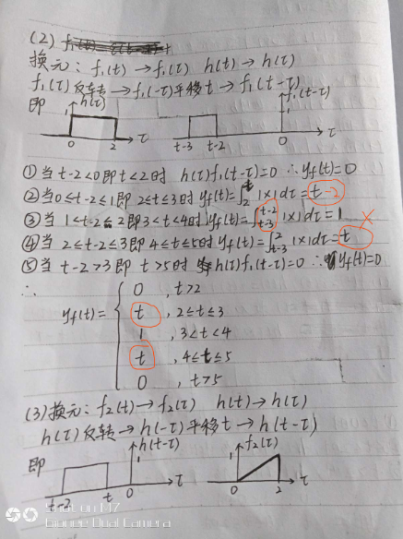 (2)
换元: f₁(t)→f₁(τ) h(t)→h(τ)
f₁(τ)反转→f₁(-τ)平移t→f₁(t-τ)
即 h(τ) f₁(t-τ)
0 2 τ t-3 t-2 0 τ
①当t-2<0即t<2时 h(τ)f₁(t-τ)=0 ∴yf(t)=0
②当0≤t-2≤1即2≤t≤3时yf(t)=∫ 1×1dτ=t-2
③当1<t-2≤2即3<t<4时yf(t)=∫_{t-3}^{t-2}1×1dτ=1 ×
④当2≤t-2≤3即4≤t≤5时yf(t)=∫_{t-3}^{2}1×1dτ=t
⑤当t-2>3即t>5时 h(τ)f₁(t-τ)=0 ∴yf(t)=0
∴
0 , t>2
t , 2≤t≤3
yf(t)= 1 , 3<t<4
t , 4≤t≤5
0 , t>5
(3)换元: f₂(t)→f₂(τ) h(t)→h(τ)
h(τ)反转→h(-τ)平移t→h(t-τ)
即 h(t-τ) f₂(τ)
t-2 t 0 τ 0 2 τ
Shot on
Dual Camera